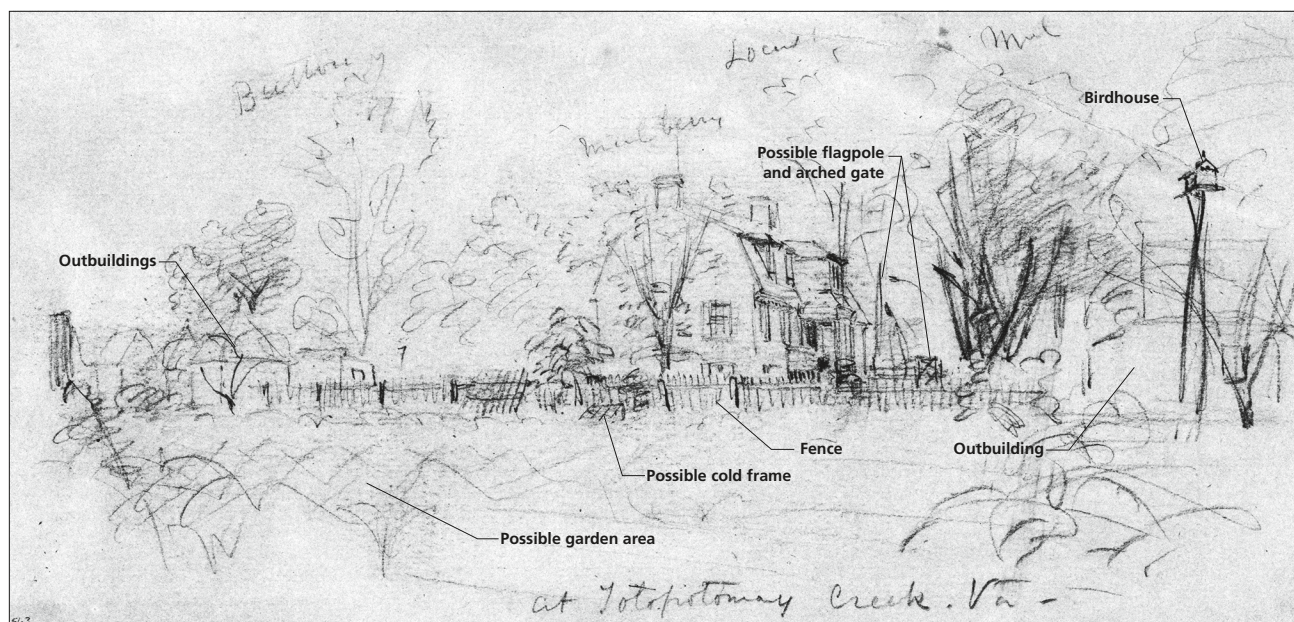 Locust
Mul
Birdhouse
mulberry
Possible flagpole
and arched gate
Outbuildings
Fence
Outbuilding
Possible cold frame
Possible garden area
at Totopotomay Creek. Va -